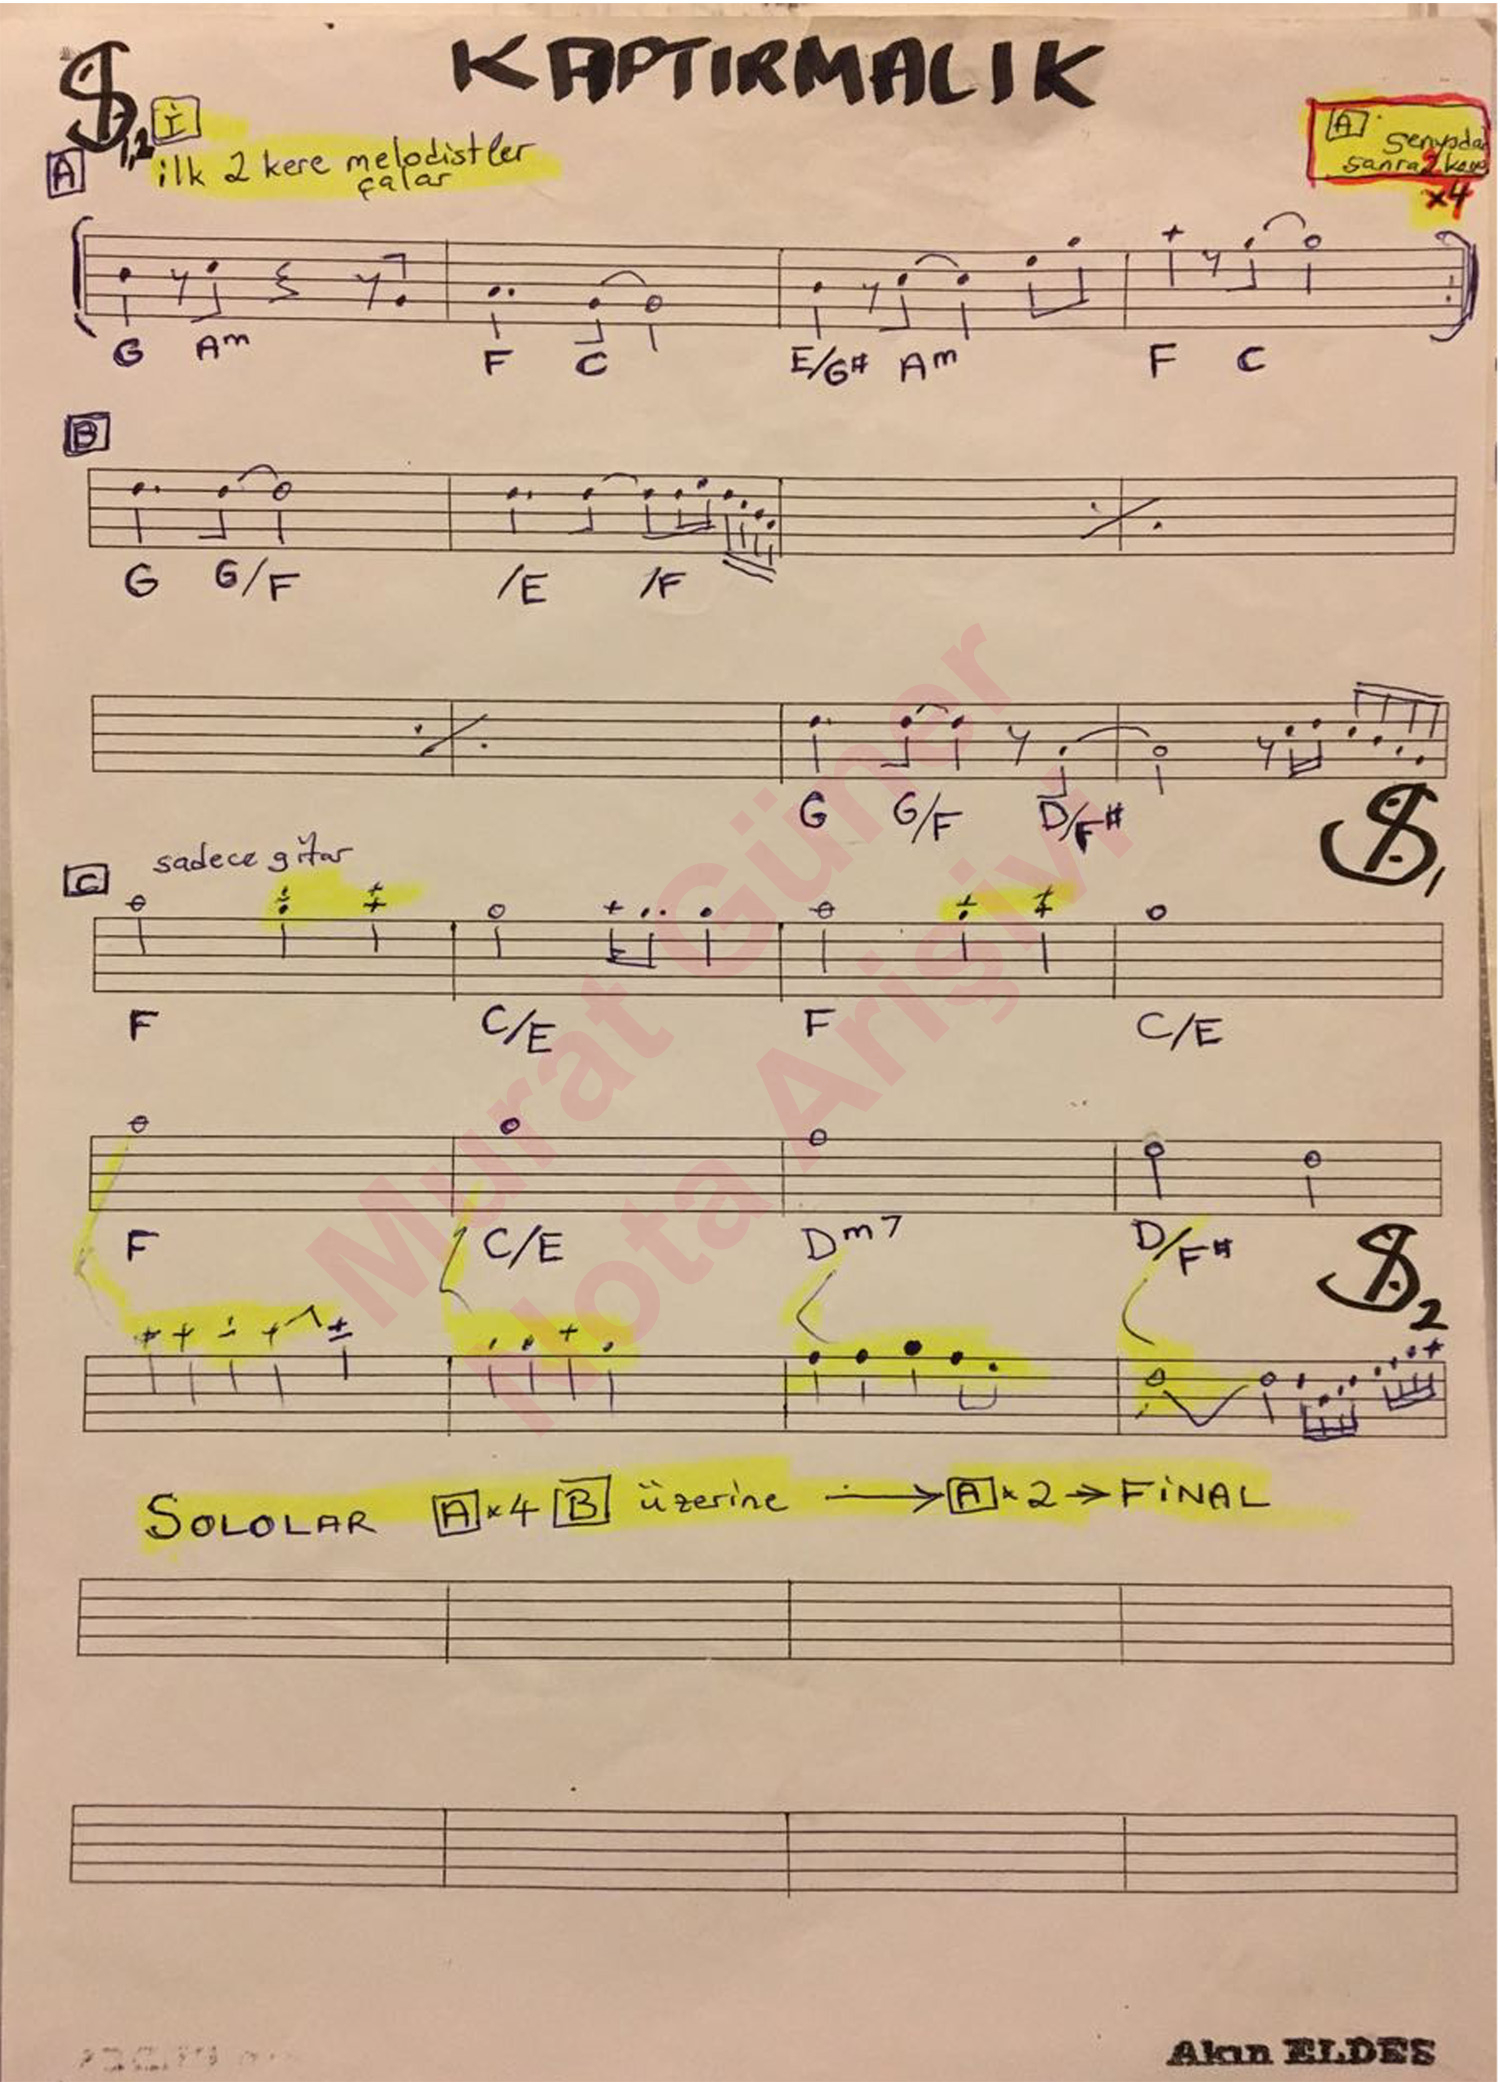 KAPTIRMALIK
1,2 İ
A ilk 2 kere melodistler
çalar
A
senyodan
sonra 2 kere
x4
G Am F C E/G# Am F C
B
G G/F /E /F
G G/F D/F#
1
C sadece gitar
F C/E F C/E
F C/E Dm7 D/F#
2
SOLOLAR A x4 B üzerine → A x 2 → FİNAL
Murat Güner
Nota Arişivi
Akın ELDES